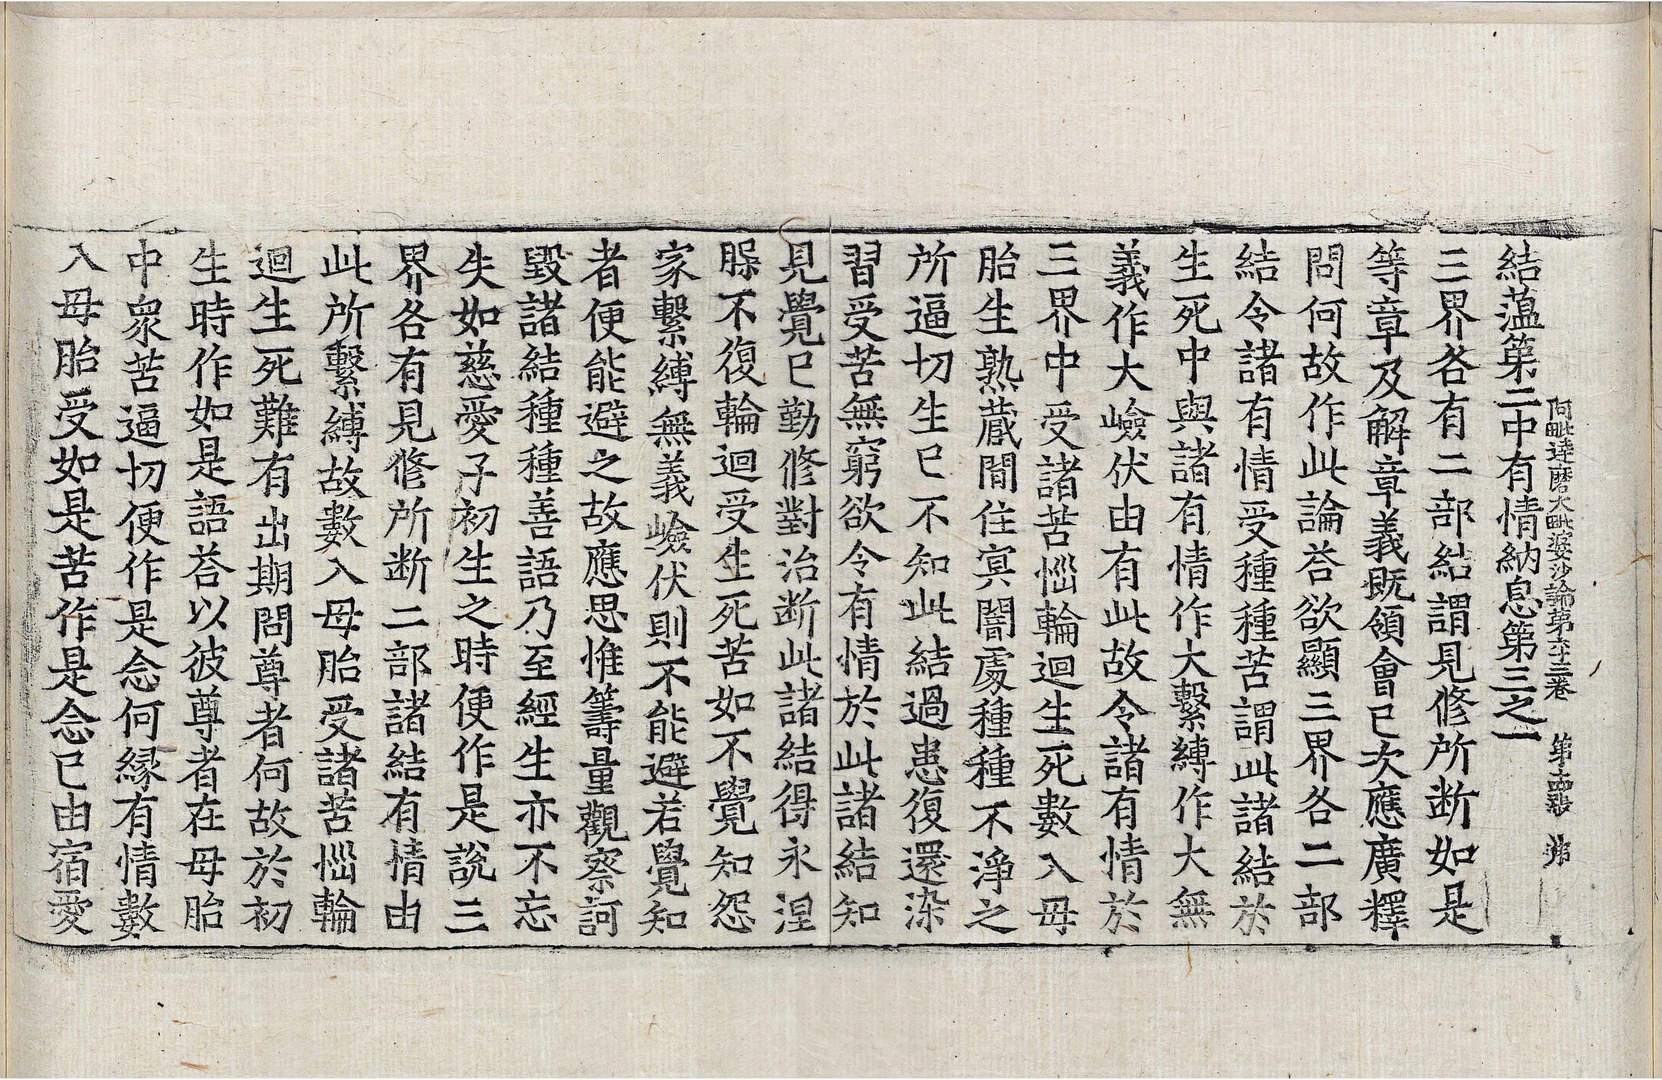 阿毗達磨大毗婆沙論第六十三卷 第二張 沛
結蘊第二中有情納息第三之一
三界各有二部結謂見修所断如是
等章及解章義既領會已次應廣釋
問何故作此論荅欲顯三界各二部
結令諸有情受種種苦謂此諸結於
生死中與諸有情作大繫縛作大無
義作大嶮伏由有此故令諸有情於
三界中受諸苦惱輪迴生死數入母
胎生熟蔵間住冥闇處種種不淨之
所逼切生已不知此結過患復還染
習受苦無窮欲令有情於此諸結知
見覺已勤修對治断此諸結得永涅
槃不復輪迴受生死苦如不覺知怨
家繫縛無義嶮伏則不能避若覺知
者便能避之故應思惟籌量觀察訶
毀諸結種種善語乃至經生亦不忘
失如慈愛子初生之時便作是說三
界各有見修所断二部諸結有情由
此所繫縛故數入母胎受諸苦惱輪
迴生死難有出期問尊者何故於初
生時作如是語荅以彼尊者在母胎
中衆苦逼切便作是念何縁有情數
入母胎受如是苦作是念已由宿愛